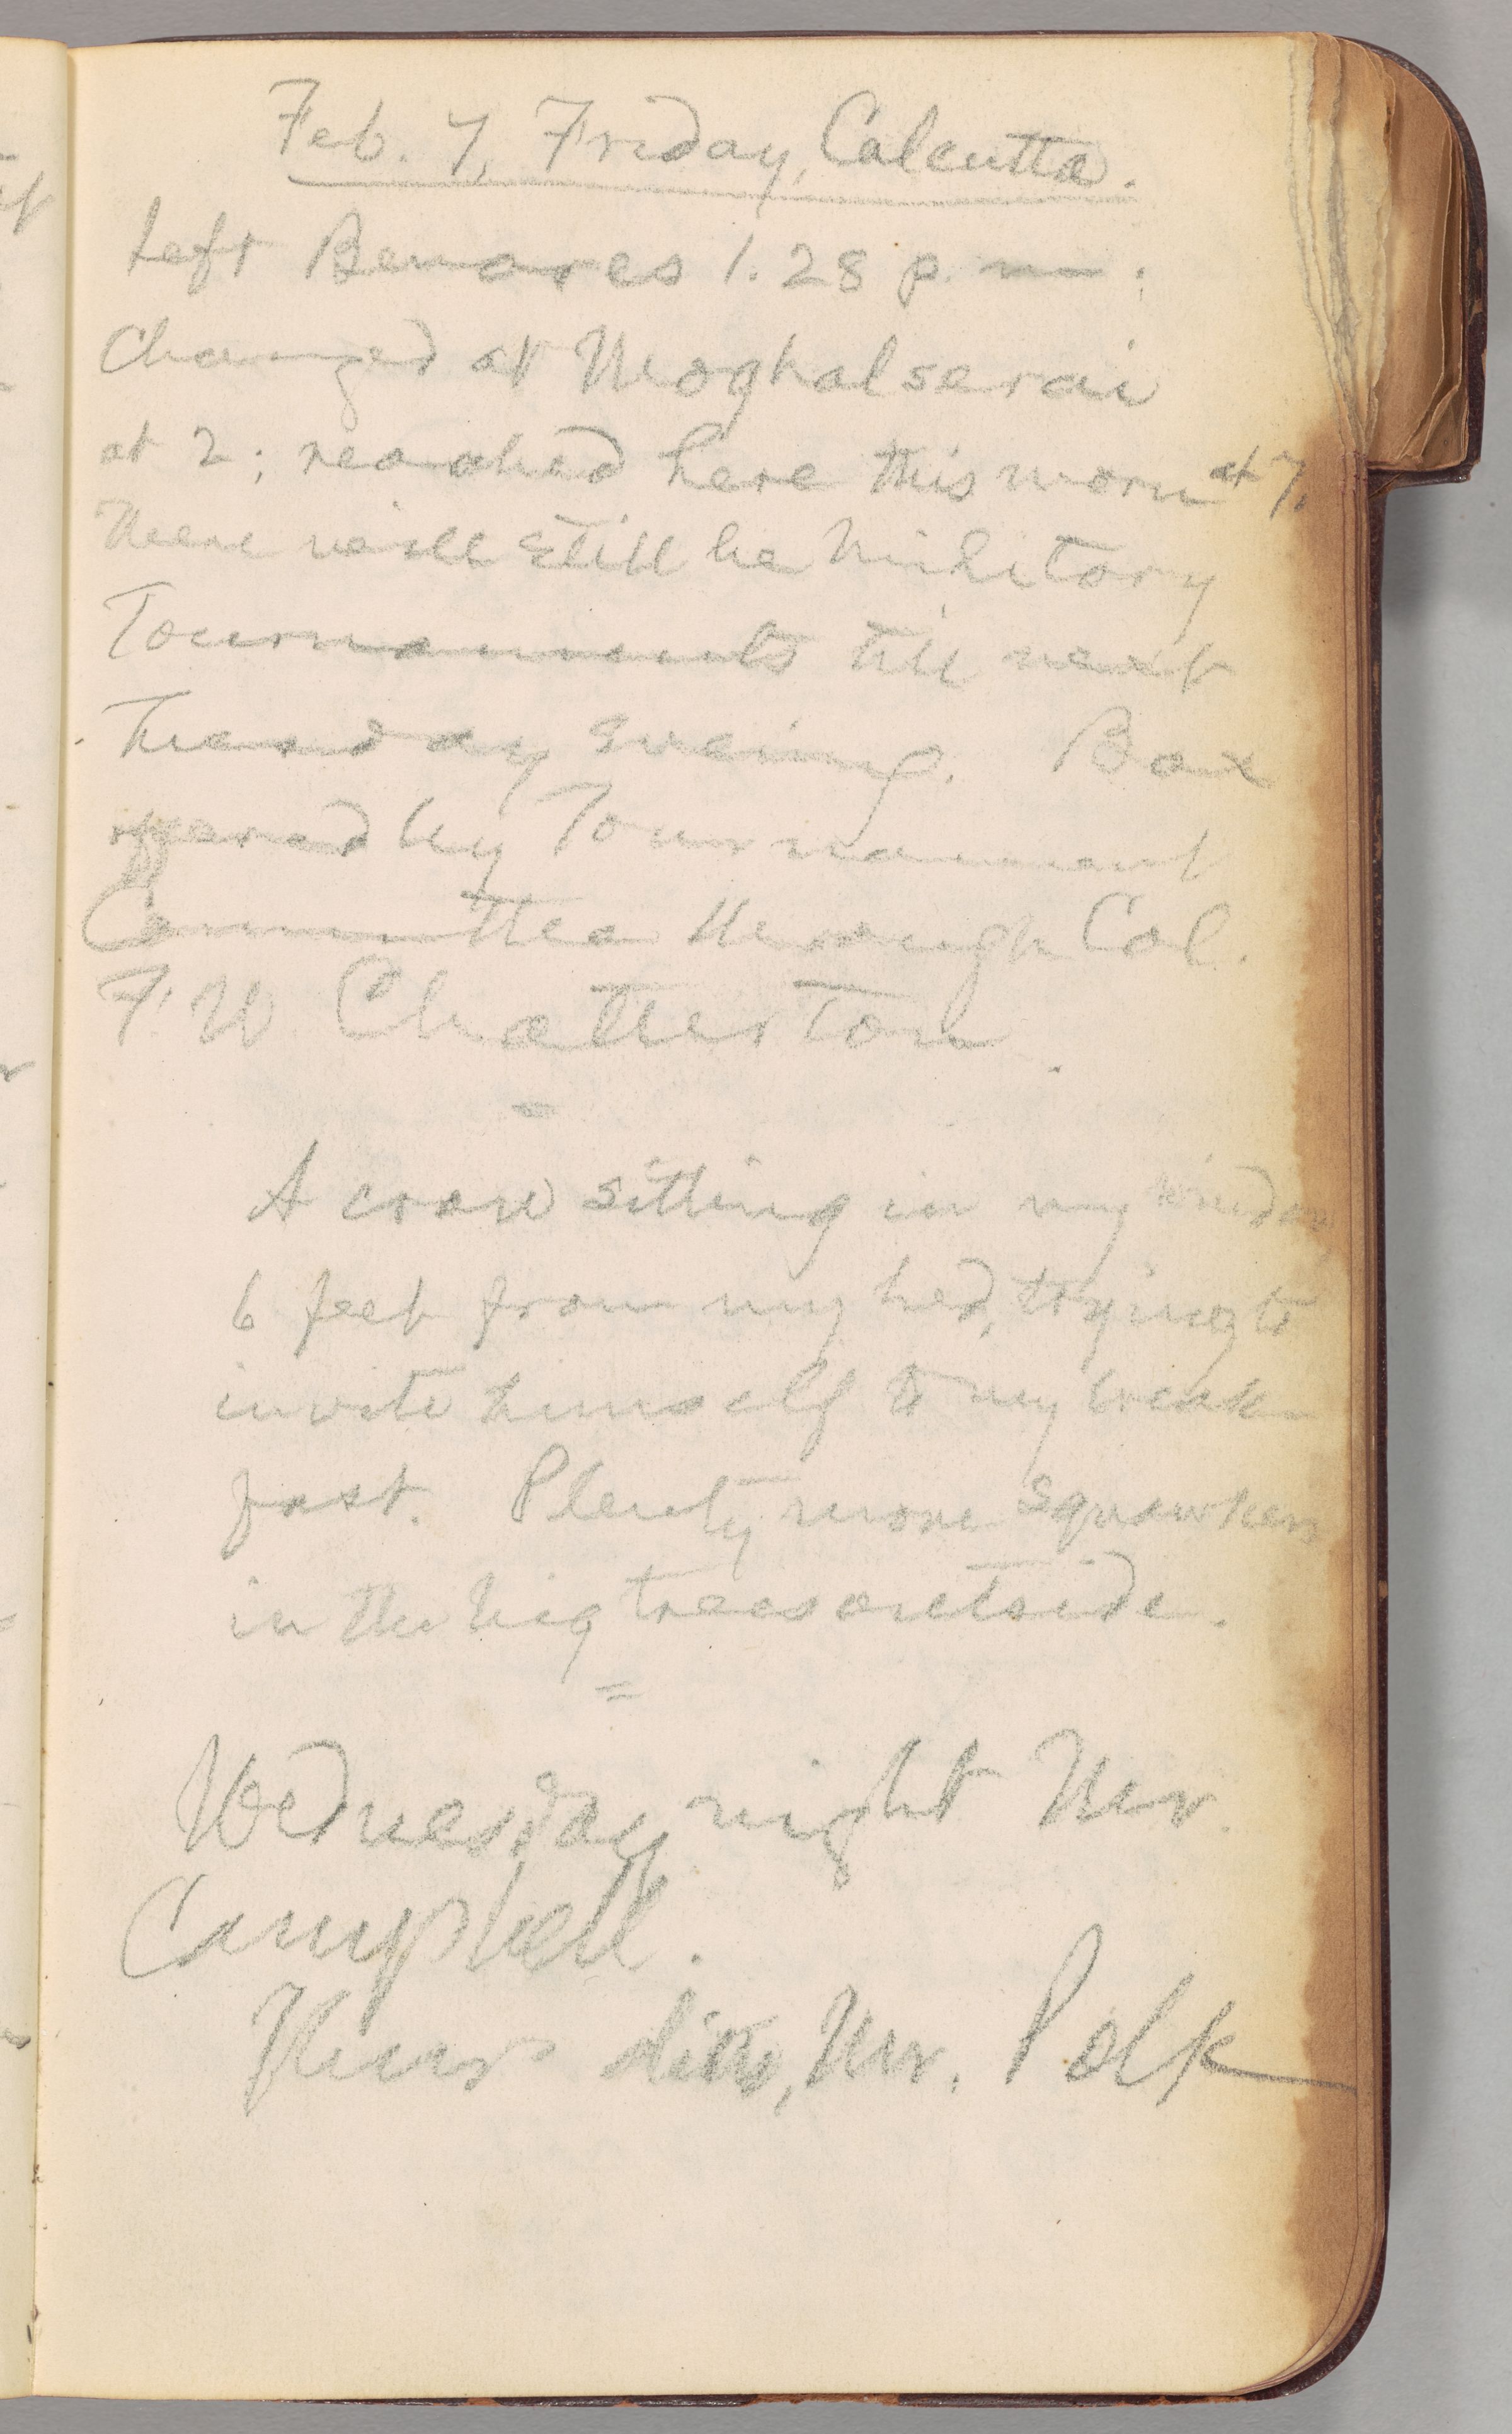 Feb. 7, Friday, Calcutta.
Left Benares 1.28 p. m.;
Changed at Moghalserai
at 2; reached here this morn at 7.
There will still be Military
Tournaments till next
Tuesday evening. Box
offered by Tournament
Committee through Col.
F. W Chatterton.
=
A crow sitting in my window
6 feet from my bed, trying to
invite himself to my break-
fast. Plenty more squawkers
in the big trees outside.
=
Wednesday night Mr.
Campbell.
Thurs ditto, Mr. Polk